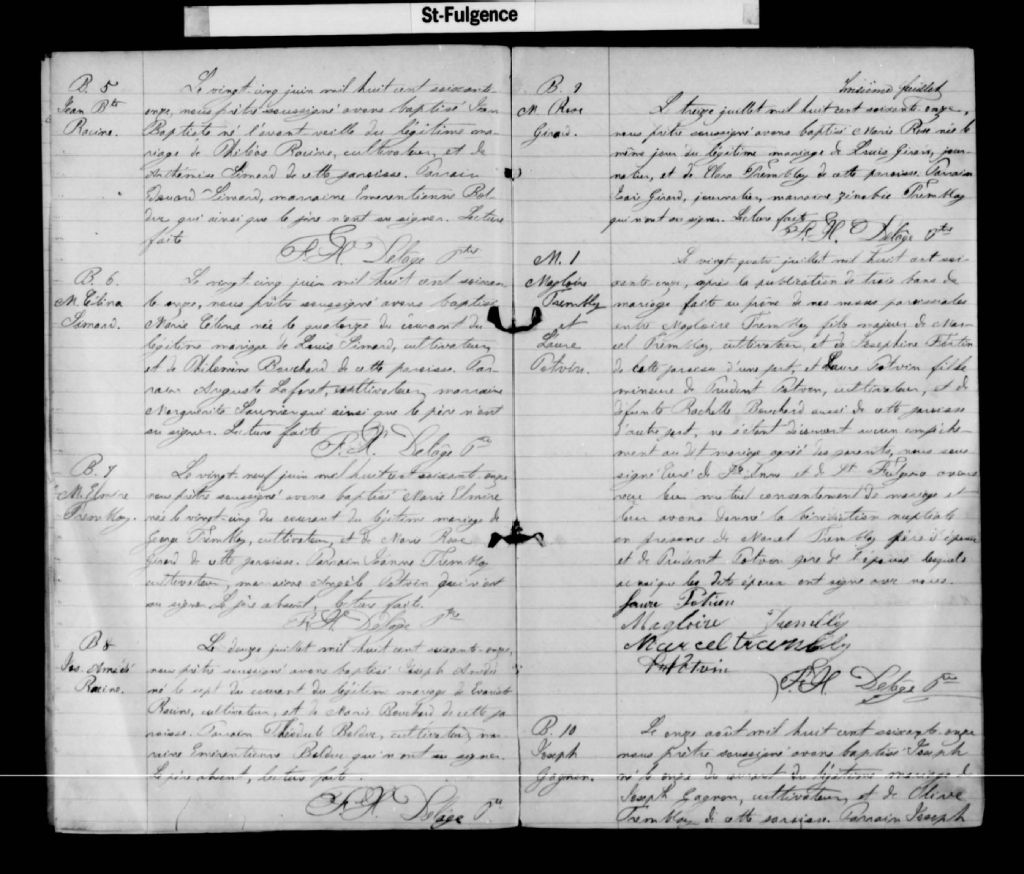 St-Fulgence
B. 5
Jean Bte
Racine.
Le vingt-cinq juin mil huit cent soixante-
onze, nous prêtre soussigné avons baptisé Jean
Baptiste né l'avant veille du légitime ma-
riage de Philéas Racine, cultivateur, et de
Arthémise Simard de cette paroisse. Parrain
Simard, marraine Emerentienne Bol-
duc qui ainsi que le père n'ont su signer. Lecture
faite
Delâge Ptre
B. 6.
M. Elina
Simard.
Le vingt cinq juin mil huit cent soixan-
te onze, nous prêtre soussigné avons baptisé
Marie Elina née le quatorze du courant du
légitime mariage de Louis Simard, cultivateur,
et de Philomène Bouchard de cette paroisse. Par-
rain Auguste Laforet, cultivateur, marraine
Marguerite qui ainsi que le père n'ont
su signer. Lecture faite
Delâge Ptre
B. 7
M. Elmire
Tremblay.
Le vingt-neuf juin mil huit cent soixante-onze
nous prêtre soussigné avons baptisé Marie Elmire
née le vingt-cinq du courant du légitime mariage de
George Tremblay, cultivateur, et de Marie Rose
Girard de cette paroisse. Parrain Tremblay
cultivateur, marraine Angèle Potvin qui n'ont
su signer. Le père absent, lecture faite.
Delâge Ptre
B 8
Jos. Amédé
Racine.
Le douze juillet mil huit cent soixante-onze,
nous prêtre soussigné avons baptisé Joseph Amédé
né le sept du courant du légitime mariage de Evariste
Racine, cultivateur, et de Marie Bouchard de cette pa-
roisse. Parrain Théodule Bolduc, cultivateur, mar-
raine Emérentienne Bolduc qui n'ont su signer.
Le père absent, lecture faite.
Delâge Ptre
B. 9
M. Rose
Girard.
Troisième feuillet
Le treize juillet mil huit cent soixante-onze,
nous prêtre soussigné avons baptisé Marie Rose née le
même jour du légitime mariage de Louis Girard, jour-
nalier, et de Clara Tremblay de cette paroisse. Parrain
Girard, journalier, marraine Zénobie Tremblay
qui n'ont su signer. Lecture faite
Delâge Ptre
M. 1
Magloire
Tremblay
et
Laure
Potvin.
Le vingt-quatre juillet mil huit cent soi-
xante-onze, après la publication de trois bans de
mariage faite au prône de nos messes paroissiales
entre Magloire Tremblay fils majeur de Mar-
cel Tremblay, cultivateur, et de Josephine Fortin
de cette paroisse d'une part, et Laure Potvin fille
mineure de Prudent Potvin, cultivateur, et de
défunte Rachelle Bouchard aussi de cette paroisse
d'autre part, ne s'étant découvert aucun empêche-
ment au dit mariage agréé des parents, nous sous-
signé Curé de Ste Anne et de St Fulgence avons
reçu leur mutuel consentement de mariage et
leur avons donné la bénédiction nuptiale
en présence de Marcel Tremblay père d'époux
et de Prudent Potvin père de l'épouse lesquels
ainsi que les dits époux ont signé avec nous.
Laure Potvin
Magloire Trembly
Marcel trambly
Potvin
Delâge Ptre
B. 10
Joseph
Gagnon.
Le onze août mil huit cent soixante-onze
nous prêtre soussigné avons baptisé Joseph
né le onze du courant du légitime mariage de
Joseph Gagnon, cultivateur, et de Olive
Tremblay de cette paroisse. Parrain Joseph